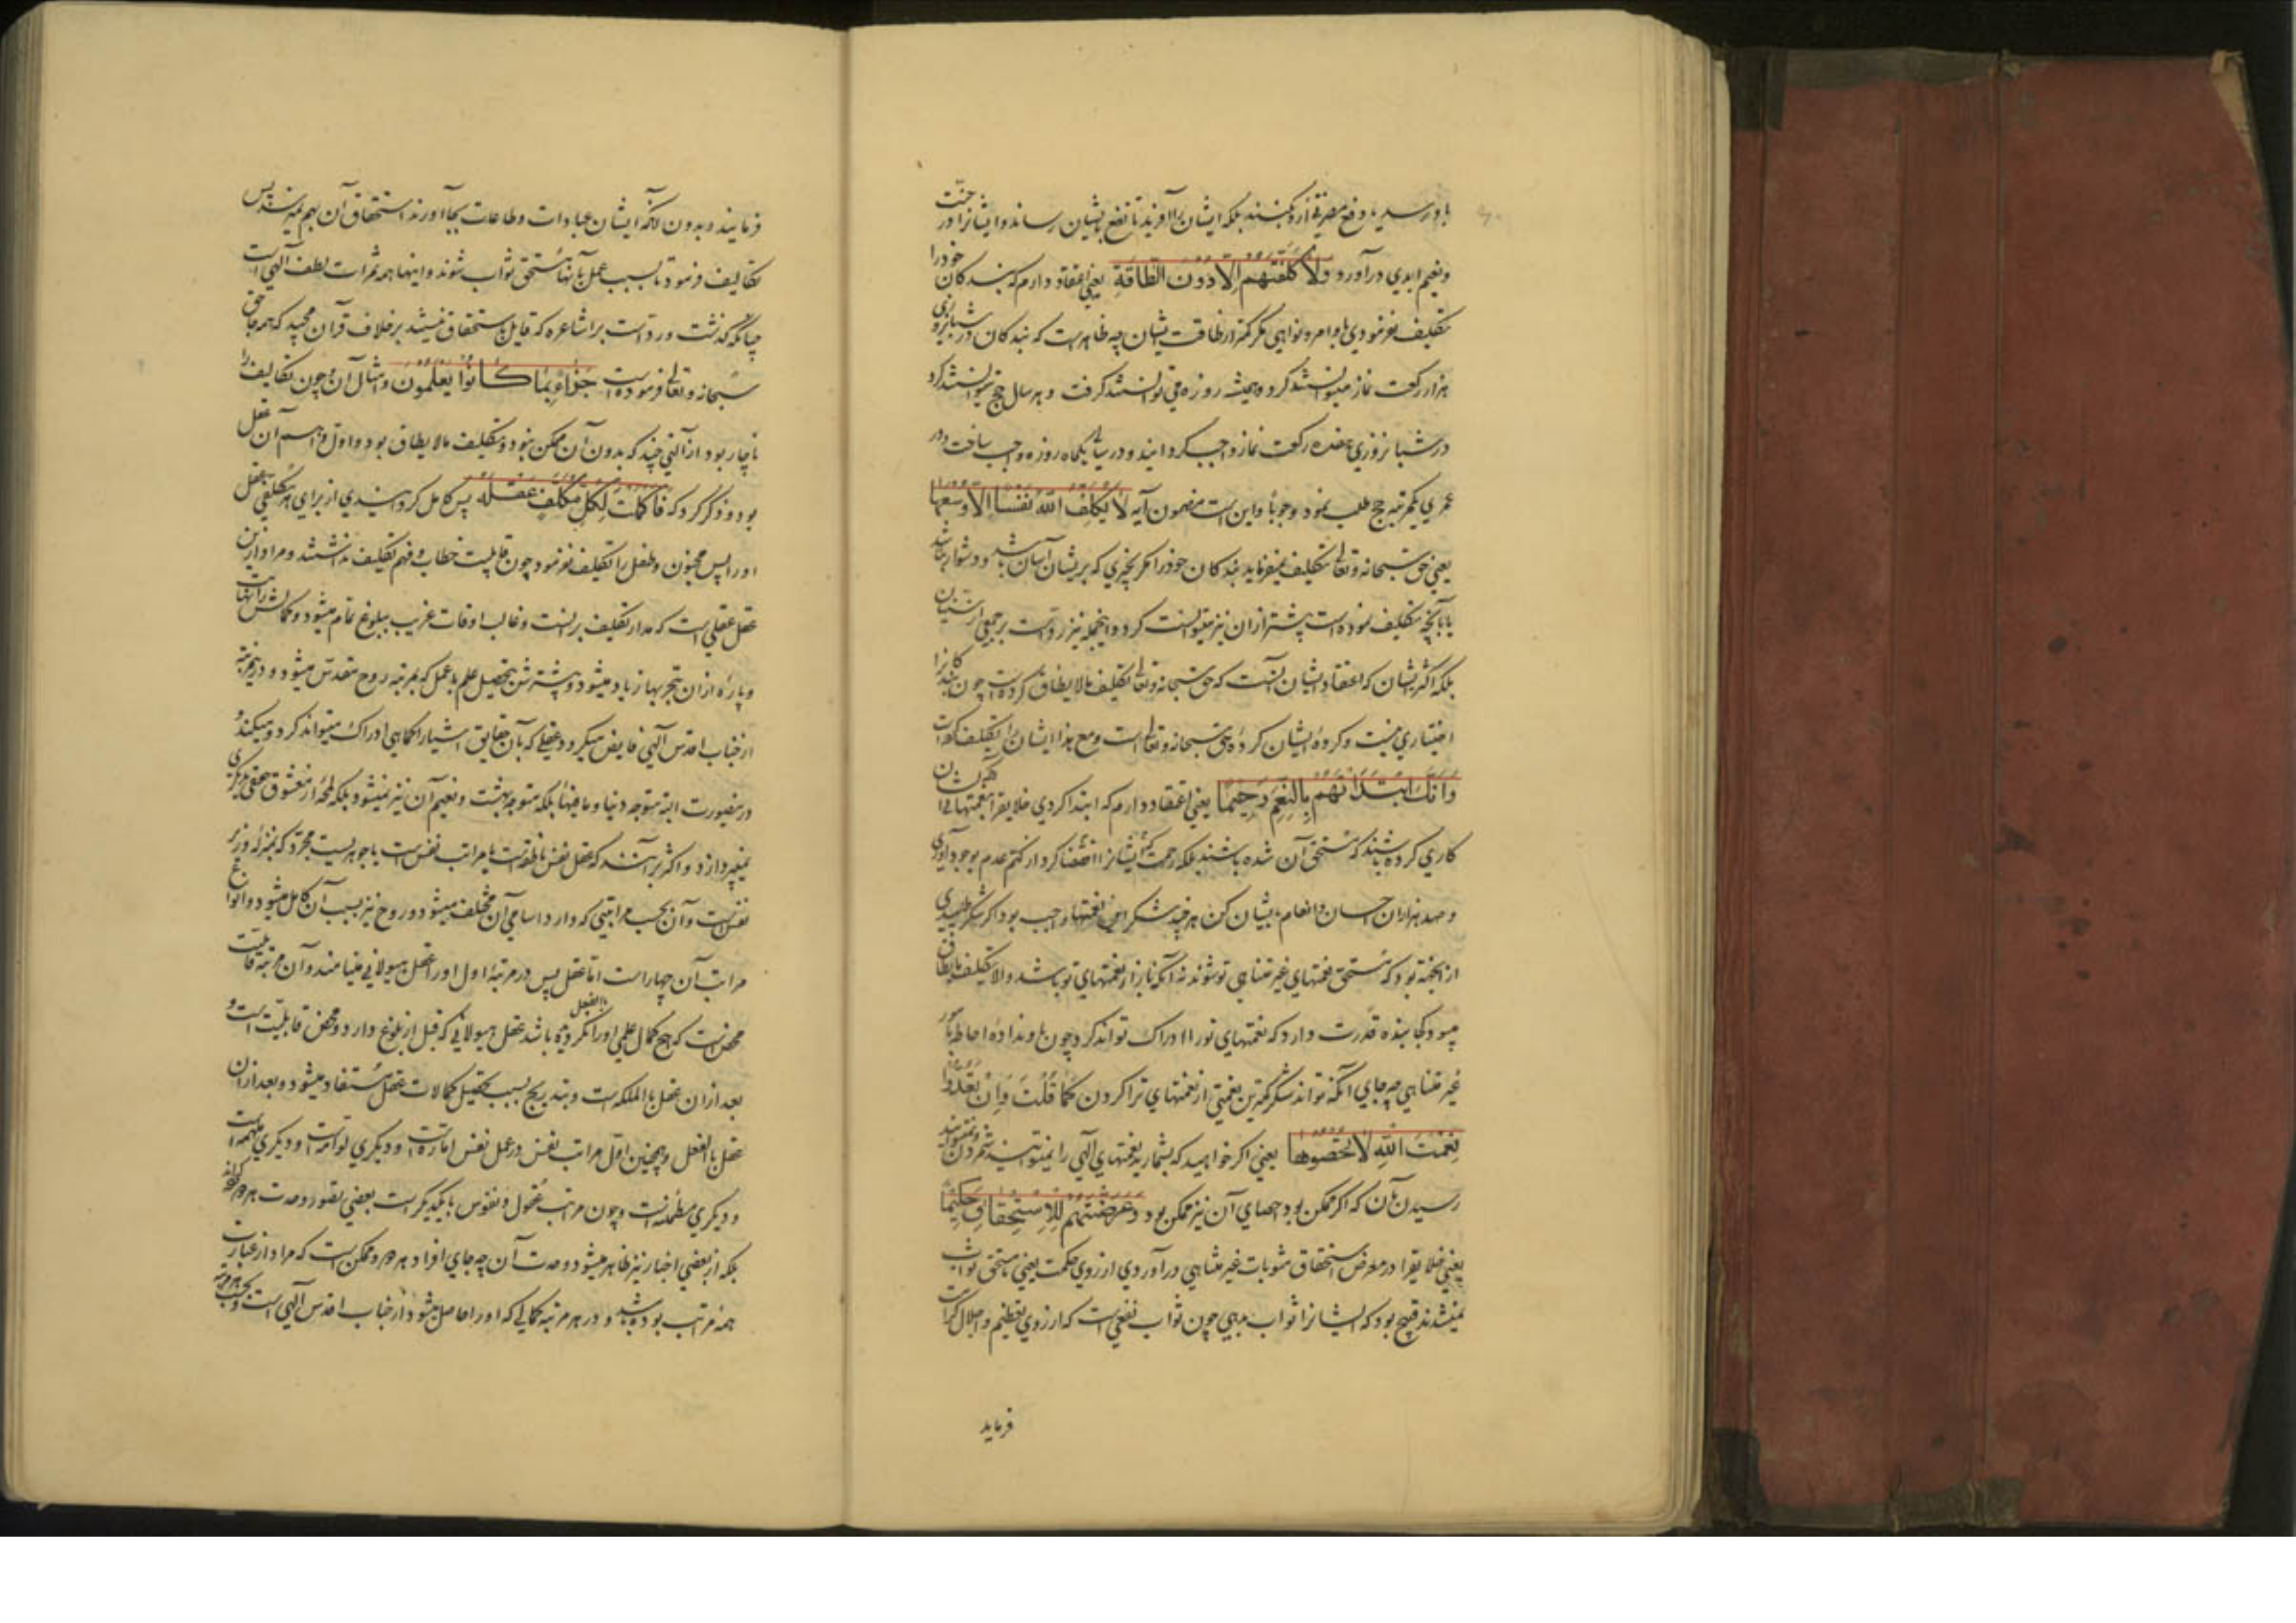 باو رسد یا دفع مضرتی ازو کنند بلکه ایشان را آفرید تا نفع بایشان رساند و ایشانرا در جنت
و نعیم ابدی درآورد ولا کلفتهم الا دون الطاقة یعنی اعتقاد دارم که بندکان خودرا
تکلیف نفرمودی باوامر و نواهی مکر کمتر از طاقت ایشان چه ظاهرست که بندکان در شبانروزی
هزار رکعت نماز میتوانستند کرد و همیشه روزه می توانستند کرفت و هر سال حج میتوانستند کرد
در شبانروزی هفده رکعت نماز واجب کردانید و در سالی یکماه روزه واجب ساخت و در
عمری یکمرتبه حج طلب نمود وجوبا و این است مضمون آیه لا یکلف الله نفسا الا وسعها
یعنی حق سبحانه و تعالی تکلیف نمیفرماید بندکان خودرا مکر بچیزی که بریشان آسان باشد و دشوار نباشد
یا بآنچه تکلیف نموده است پیشتر ازان نیز میتوانست کرد و اینجمله نیز ردّست بر جمعی از سنیان
بلکه اکثر ایشان که اعتقاد ایشان آنست که حق سبحانه و تعالی تکلیف مالا یطاق کرده است چون بندکانرا
اختیاری نیست و کردهٔ ایشان کردهٔ حق سبحانه و تعالی است و مع هذا ایشان را تکلیف کرده است
وانك ابتدأتهم بالنعم رحیما یعنی اعتقاد دارم که ابتدا کردی خلایق را بنعمتها بی آنکه ایشان
کاری کرده باشند که مستحق آن شده باشند بلکه رحمت ایشانرا اقتضا کرد از کتم عدم بوجود آوری
و صد هزاران احسان و انعام بایشان کنی هر چند شکر این نعمتها واجب بود اکر شکر طلبیدی
از جهة آن بود که مستحق نعمتهای غیر متناهی تو شوند نه آنکه بازار نعمتهای تو باشد والا تکلیف مالا یطاق
میبود کجا بنده قدرت دارد که نعمتهای تورا ادراک تواند کرد چون تواند اداه احاطه بامور
غیر متناهی چه جای آنکه تواند شکر کمترین نعمتی از نعمتهای ترا کردن کما قلت وان تعدوا
نعمت الله لا تحصوها یعنی اکر خواهید که بشمارید نعمتهای الهی را نمیتوانید شمردن و نمیتوانید
رسیدن بآن که اکر ممکن بود احصای آن نیز ممکن بود وعرضتهم للاستحقاق حکیما
یعنی خلایق را در معرض استحقاق مثوبات غیر متناهی درآوردی از روی حکمت یعنی تا مستحق ثواب
نمیشدند قبیح بود که ایشانرا ثواب دهی چون ثواب نفعی است که از روی تعظیم و اجلال کرامت
فرماید
فرمایند و بدون آنکه ایشان عبادات و طاعات بجا آورند استحقاق آن بهم نمیرسد پس
تکالیف فرمود تا بسبب عمل بآنها مستحق ثواب شوند و اینها همه ثمرات لطف آلهی است
چنانکه کذشت و ردّاست بر اشاعره که قایل باستحقاق نیستند بر خلاف قرآن مجید که همه جا حق
سبحانه و تعالی فرموده است جزاء بما کانوا یعلمون و امثال آن و چون تکالیف را
ناچار بود از آلتی چند که بدون آن ممکن نبود و تکلیف مالا یطاق بود و اول و اهم آن عقل
بود و ذکر کرد که فاکملت لکل مکلف عقله پس کامل کردانیدی از برای هر مکلفی عقل
اورا پس مجنون و طفل را تکلیف نفرمود چون قابلیت خطاب و فهم تکلیف نداشتند و مراد ازین
عقل عقلی است که مدار تکلیف برانست و غالب اوقات غریب ببلوغ تمام میشود و کمالش را نهایت
و پارهٔ ازان بتجربها زیاد میشود و بیشترش بتحصیل علم با عمل که بمرتبه روح مقدس میشود و در هر مرتبه
از جناب اقدس آلهی فایض میکردد عقلی که بآن حقایق اشیارا کماهی ادراک میتواند کرد و میکند و
درینصورت البته متوجه دنیا و ما فیها بلکه متوجه بهشت و نعیم آن نیز نمیشود بلکه لمحهٔ از معشوق حقیقی بدیکری
نمیپردازد و اکثر برآنند که عقل نفس ناطقه است یا مراتب نفس است یا جوهریست مجرد که بمنزلهٔ وزیر
نفس است و آن بحسب مراتبی که دارد اسامی آن مختلف میشود و روح نیز بسبب آن کامل میشود و انواع
مراتب آن چهار است اما عقل پس در مرتبهٔ اول اورا عقل هیولانی مینامند و آن مرتبه قابلیت
محض است که هیچ کمال علمی اورا بالفعل نکردیده باشد عقل هیولانی که قبل از بلوغ دارد و محض قابلیت است و
بعد ازان عقل بالملکه است و بتدریج بسبب تحصیل کمالات عقل مستفاد میشود و بعد ازان
عقل بالفعل و همچنین اول مراتب نفس در عمل نفس اماره است و دیکری لوامه است و دیکری ملهمه است
و دیکری مطمئنه است و چون مراتب عقول و نفوس با یکدیکر است بعضی تصور وحدت هردو کرده‌اند
بلکه از بعضی اخبار نیز ظاهر میشود وحدت آن چه جای افراد هر دو و ممکن است که مراد از عبارت
همه مراتب بوده باشد و در هر مرتبه کمالی که اورا حاصل میشود از جناب اقدس آلهی است و بحسب هر مرتبه